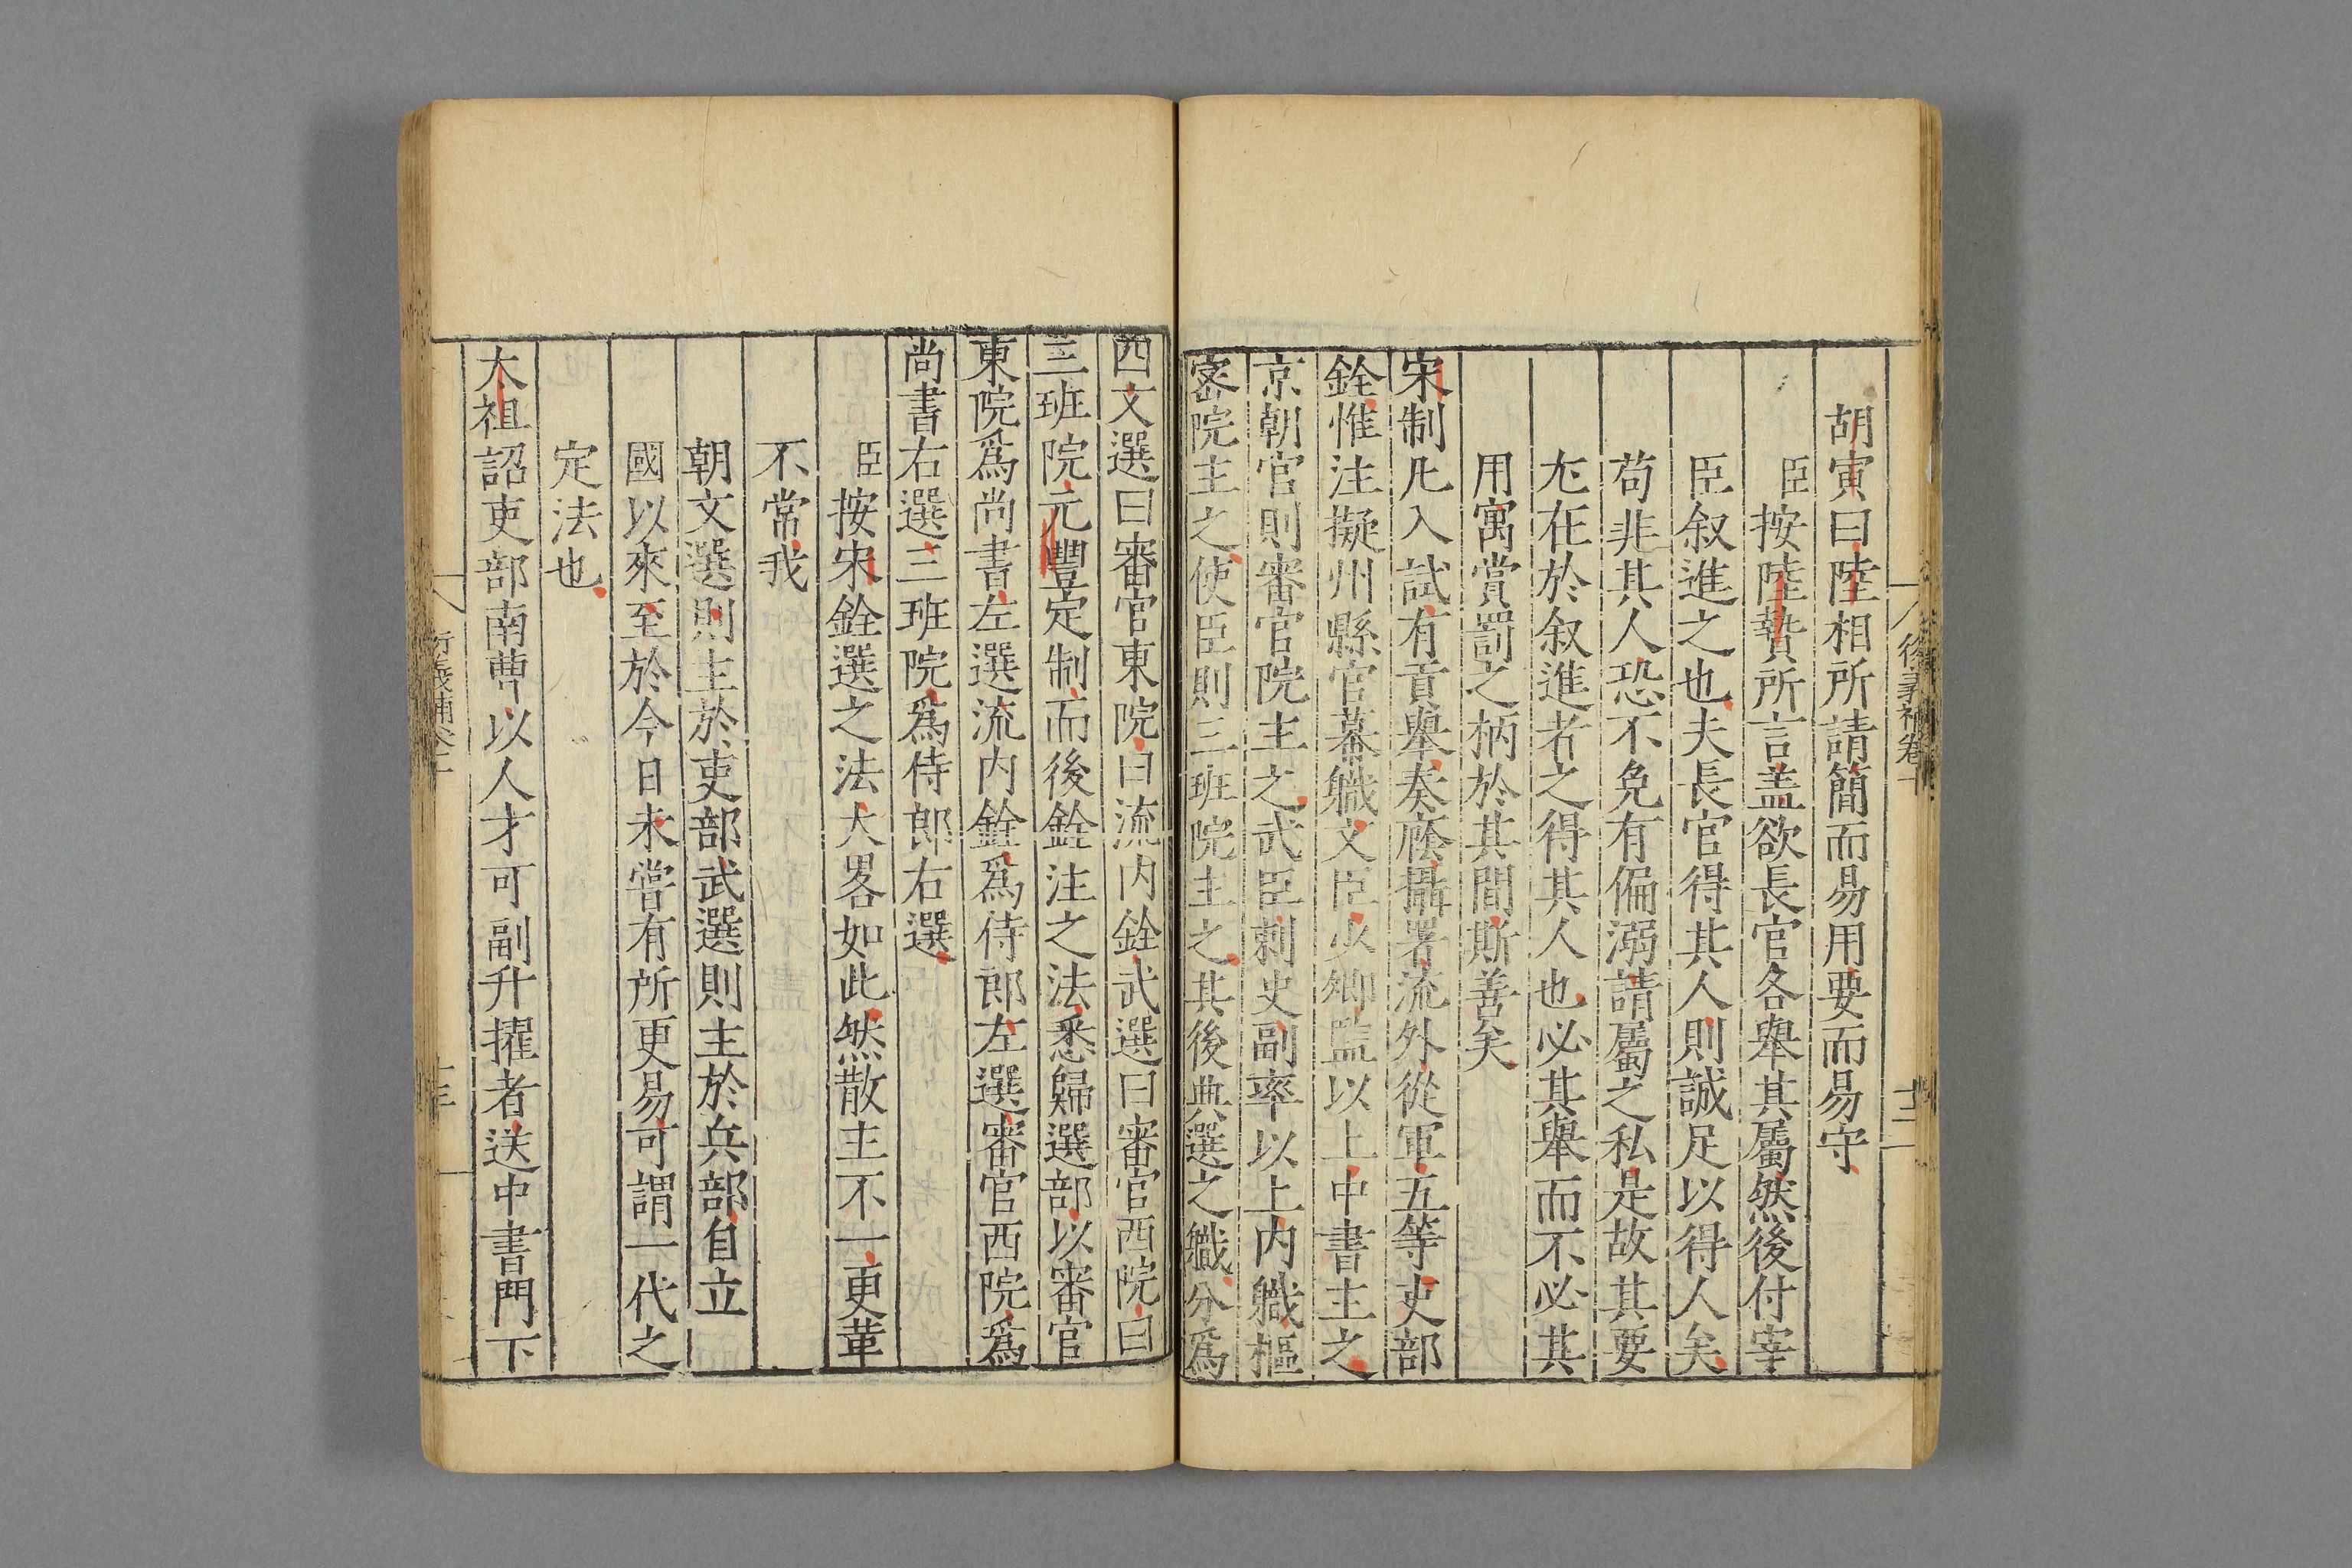 後義補卷十
十二
胡寅曰陸相所請簡而易用要而易守
臣按陸贄所言盖欲長官各舉其屬然後付宰
臣叙進之也夫長官得其人則誠足以得人矣
苟非其人恐不免有偏溺請屬之私是故其要
尤在於叙進者之得其人也必其舉而不必其
用寓賞罰之柄於其間斯善矣
宋制凡入試有貢舉奏廕攝署流外從軍五等吏部
銓惟注擬州縣官幕職文臣少卿監以上中書主之
京朝官則審官院主之武臣刺史副率以上內職樞
宻院主之使臣則三班院主之其後典選之職分爲
四文選曰審官東院曰流内銓武選曰審官西院曰
三班院元豐定制而後銓注之法悉歸選部以審官
東院爲尚書左選流内銓爲侍郎左選審官西院爲
尚書右選三班院爲侍郎右選
臣按宋銓選之法大畧如此然散主不一更革
不常我
朝文選則主於吏部武選則主於兵部自立
國以來至於今日未嘗有所更易可謂一代之
定法也
太祖詔吏部南曹以人才可副升擢者送中書門下
衍義補卷十
十三